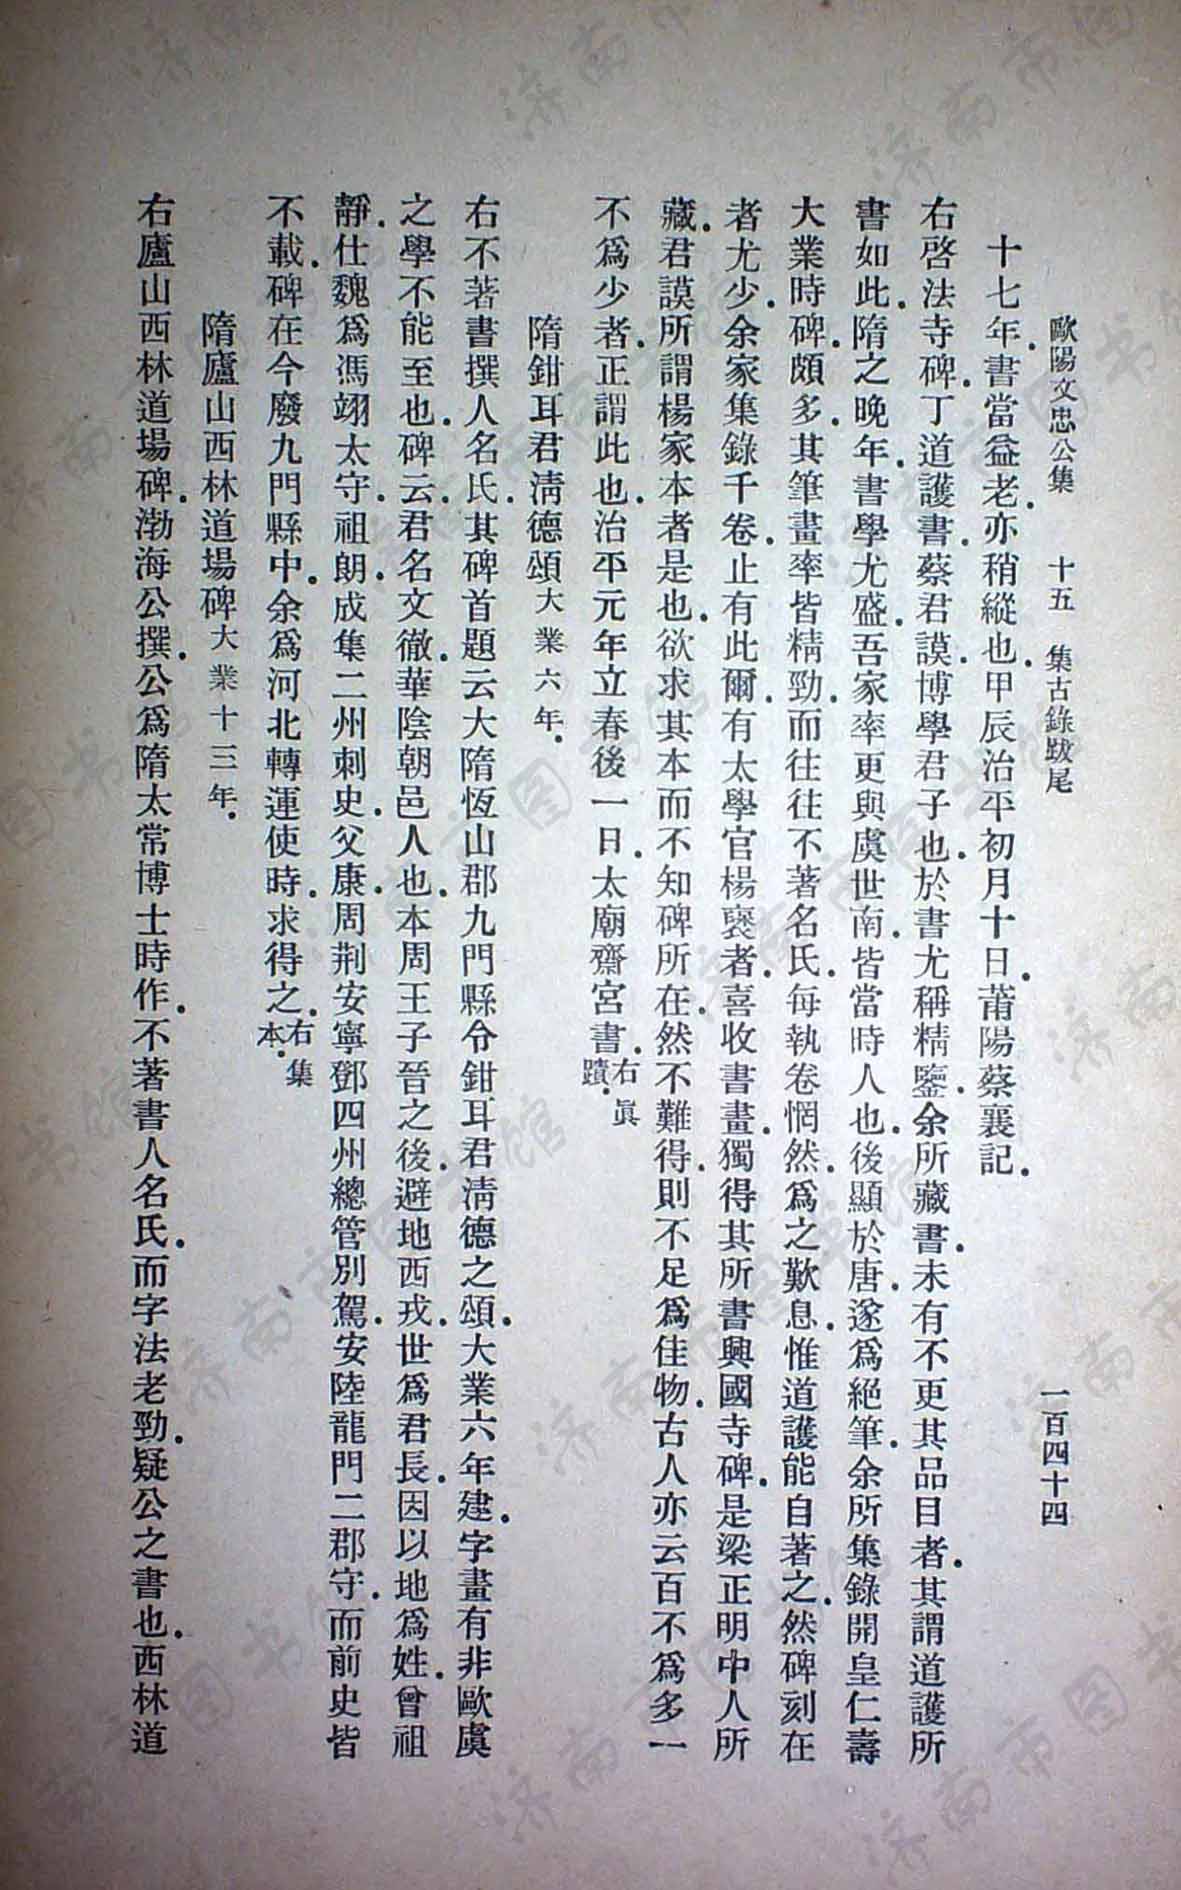 歐陽文忠公集　十五　集古錄跋尾　一百四十四
十七年．書當益老．亦稍縱也．甲辰治平初月十日．莆陽蔡襄記．
右啓法寺碑．丁道護書．蔡君謨．博學君子也．於書尤稱精鑒．余所藏書．未有不更其品目者．其謂道護所
書如此．隋之晚年．書學尤盛．吾家率更與虞世南．皆當時人也．後顯於唐．遂爲絕筆．余所集錄開皇仁壽
大業時碑．頗多．其筆畫率皆精勁．而往往不著名氏．每執卷惘然．爲之歎息．惟道護能自著之．然碑刻在
者尤少．余家集錄千卷．止有此爾．有太學官楊褒者．喜收書畫．獨得其所書興國寺碑．是梁正明中人所
藏．君謨所謂楊家本者是也．欲求其本而不知碑所在．然不難得．則不足爲佳物．古人亦云百不爲多一
不爲少者．正謂此也．治平元年立春後一日．太廟齋宮書．右眞蹟．
隋鉗耳君淸德頌大業六年．
右不著書撰人名氏．其碑首題云大隋恆山郡九門縣令鉗耳君淸德之頌．大業六年建．字畫有非歐虞
之學不能至也．碑云．君名文徹．華陰朝邑人也．本周王子晉之後．避地西戎．世爲君長．因以地爲姓．曾祖
靜．仕魏爲馮翊太守．祖朗．成集二州刺史．父康．周荆安寧鄧四州總管別駕．安陸龍門二郡守．而前史皆
不載．碑在今廢九門縣中．余爲河北轉運使時．求得之．右集本．
隋廬山西林道場碑大業十三年．
右廬山西林道場碑．渤海公撰．公爲隋太常博士時作．不著書人名氏．而字法老勁．疑公之書也．西林道